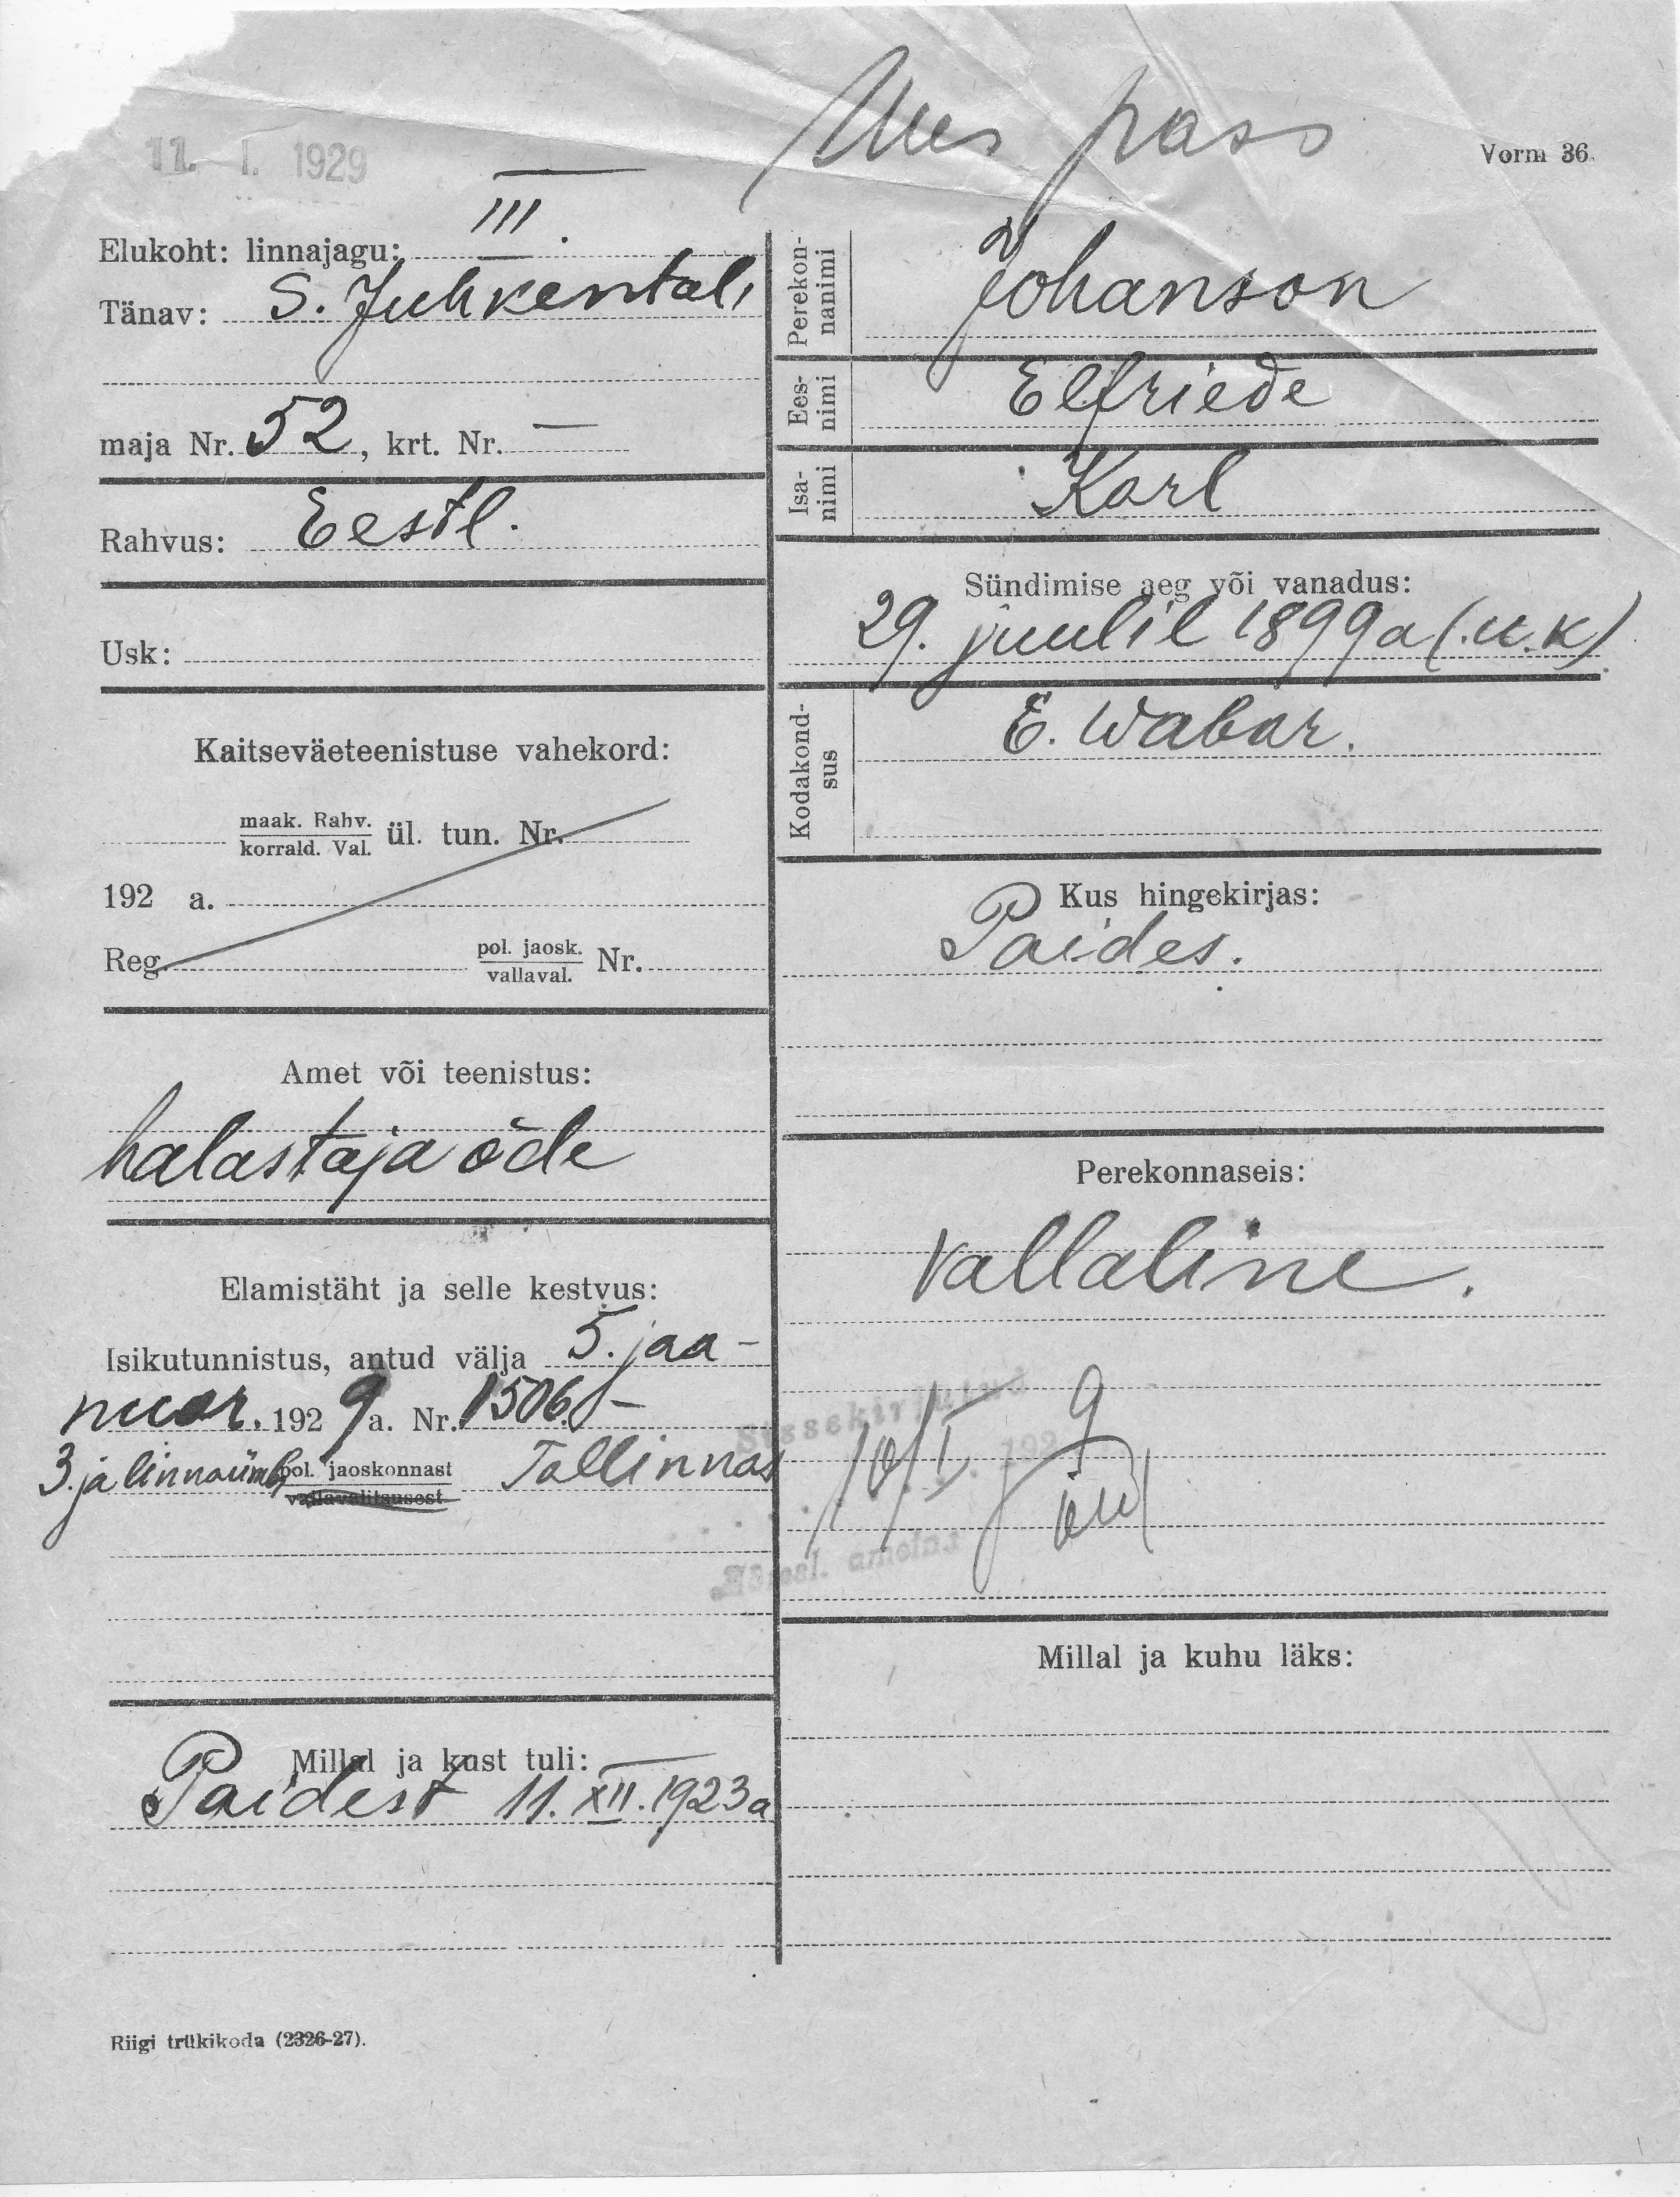 Uus pass
11. I. 1929
Vorm 36.
Elukoht: linnajagu: III.
Tänav: S. Juhkentali
maja Nr. 52, krt. Nr. —
Rahvus: Eestl.
Usk:
Kaitseväeteenistuse vahekord:
maak. Rahv.
korrald. Val. ül. tun. Nr.
192 a.
Reg. pol. jaosk. Nr.
vallaval.
Amet või teenistus:
halastaja õde
Elamistäht ja selle kestvus:
Isikutunnistus, antud välja 5. jaa-
nuar. 1929 a. Nr. 1506.–
3. ja linnaümb. pol. jaoskonnast Tallinnas
vallavalitsusest
Millal ja kust tuli: —
Paidest 11. XII. 1923 a
Riigi trükikoda (2326-27).
Perekon-
nanimi
Johanson
Ees-
nimi
Elfriede
Isa-
nimi
Karl
Sündimise aeg või vanadus:
29. juulil 1899 a (.u.k)
Kodakond-
sus
E. Wabar.
Kus hingekirjas:
Paides.
Perekonnaseis:
Vallaline.
Sissekirjutud
10/I 1929
ametn
Millal ja kuhu läks: